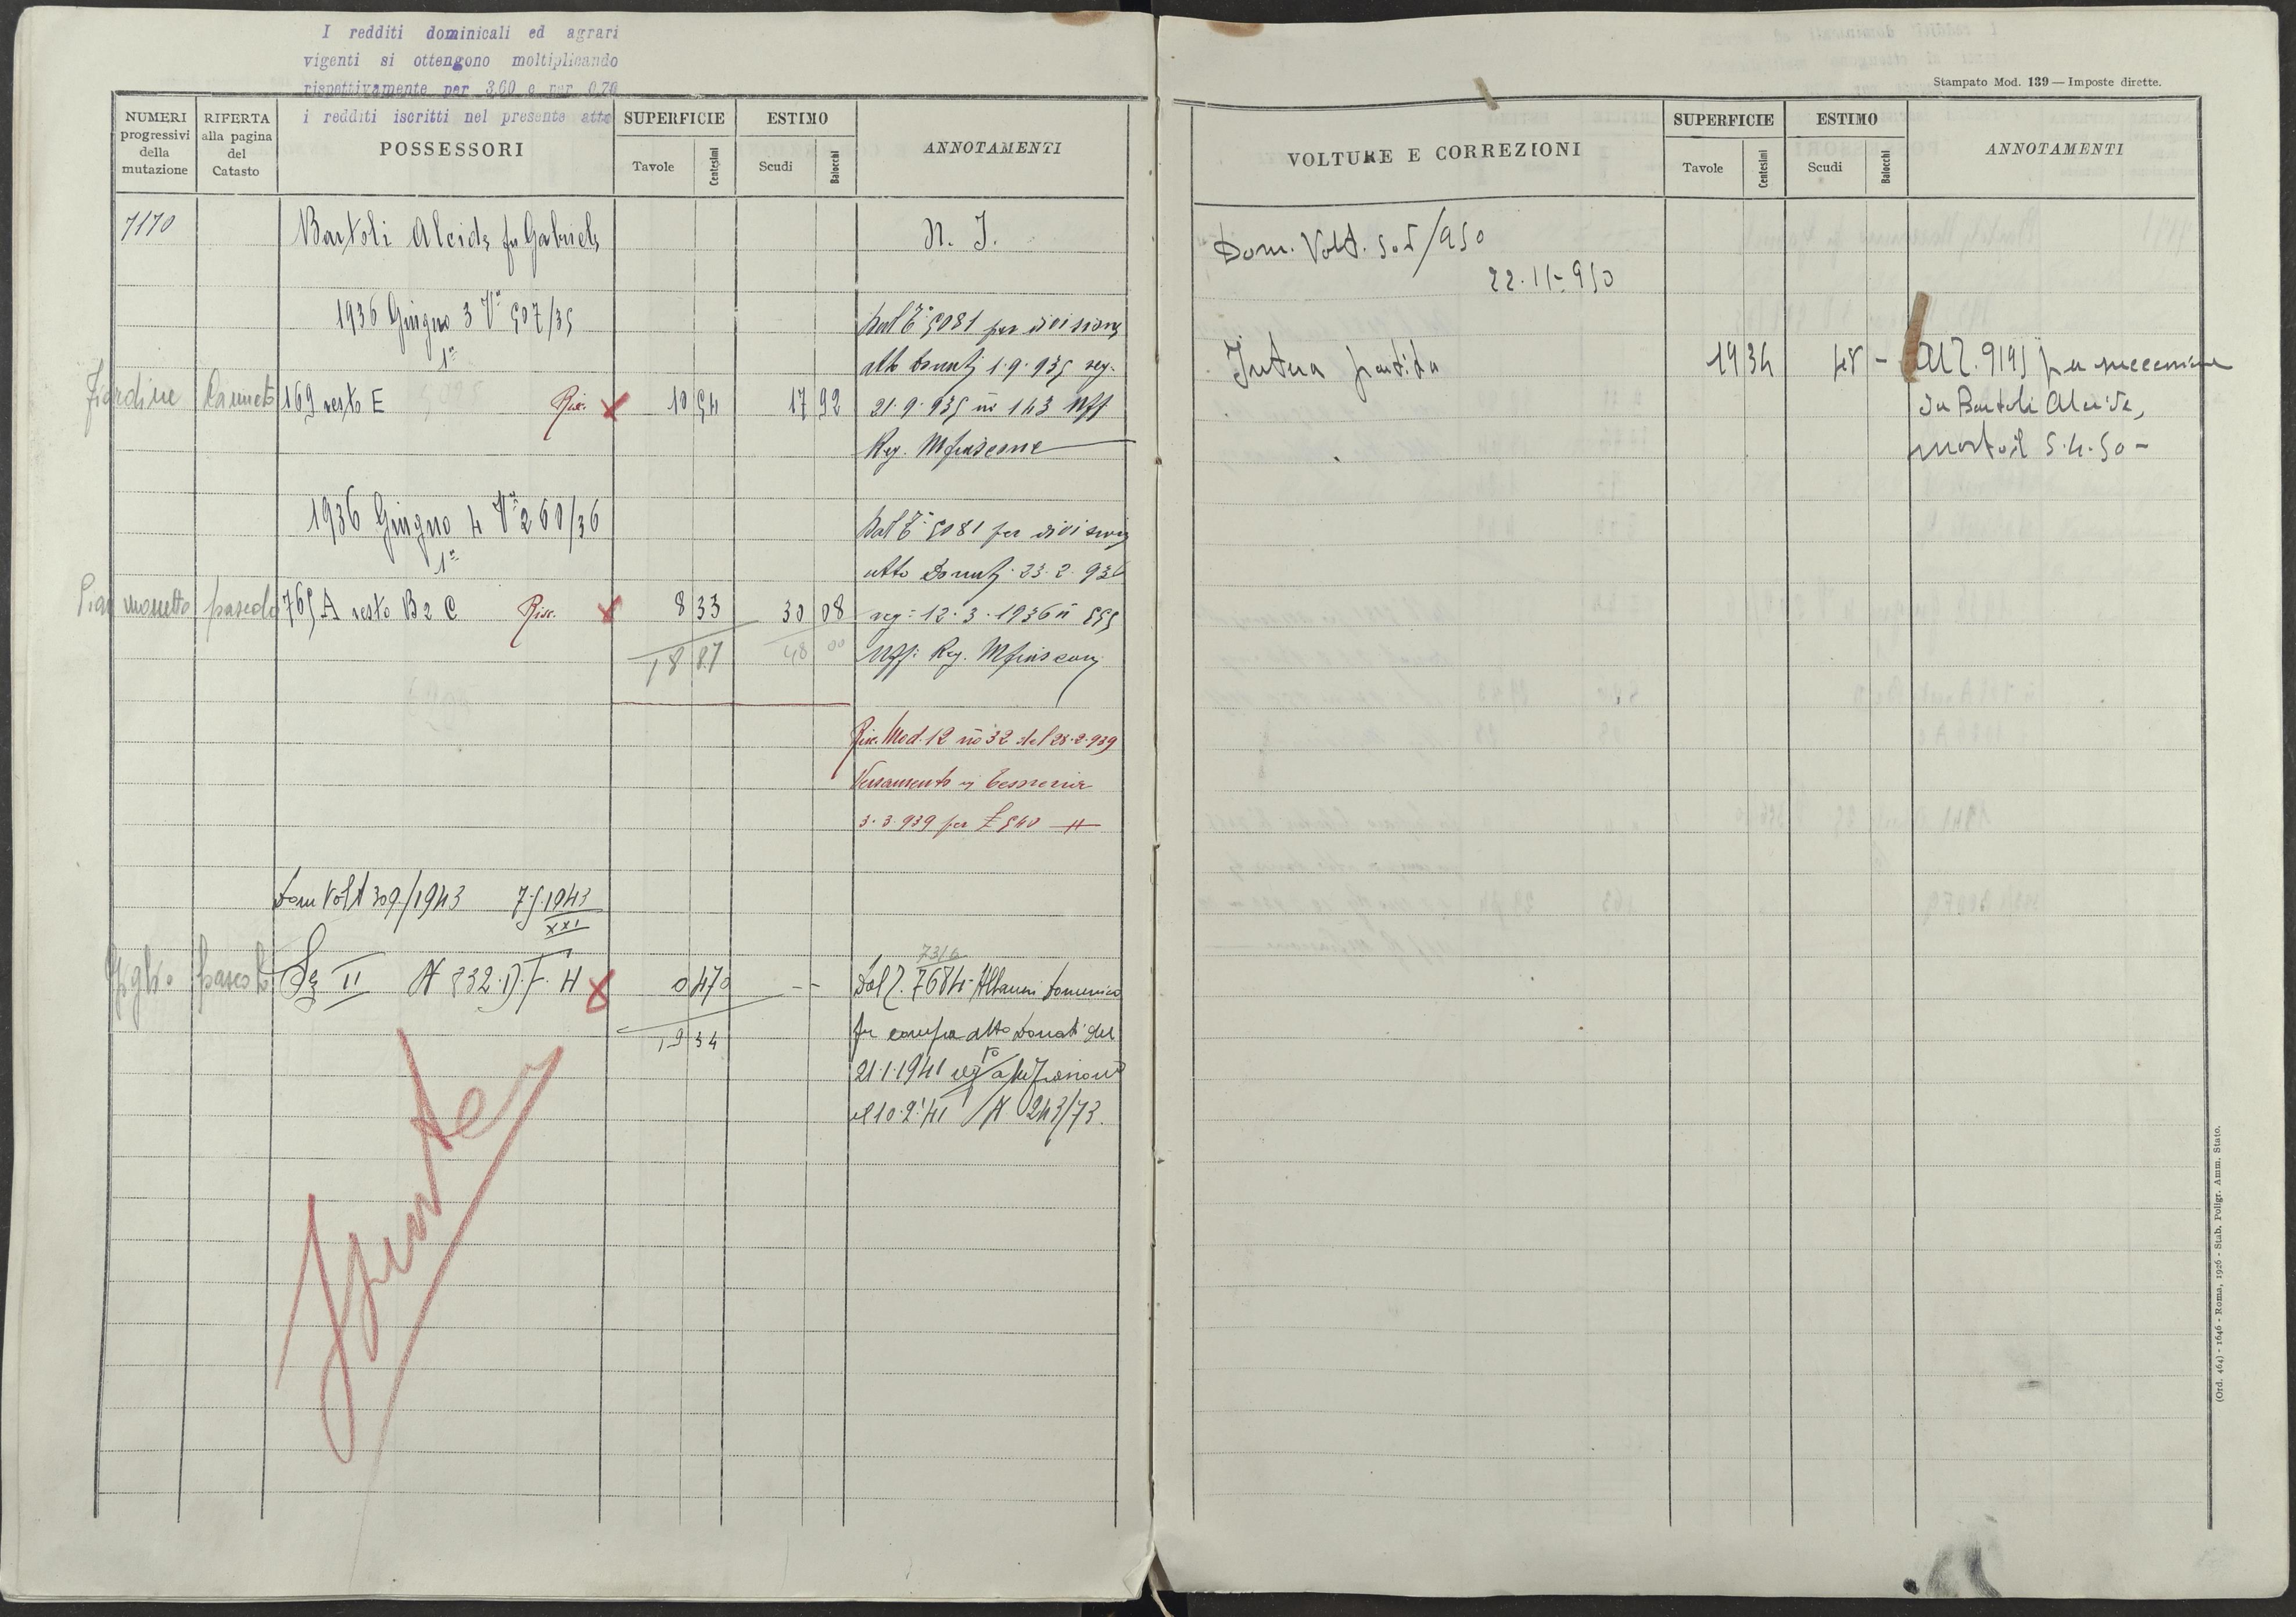 I redditi dominicali ed agrari
vigenti si ottengono moltiplicando
rispettivamente per 3,60 e per 0,70
i redditi iscritti nel presente atto
NUMERI progressivi della mutazione
RIFERTA alla pagina del Catasto
POSSESSORI
SUPERFICIE
Tavole
Centesimi
ESTIMO
Scudi
Baiocchi
ANNOTAMENTI
7170 Bartoli Alcide fu Gabriele N. I.
1936 Giugno 3 Va 507/35
1a
Dal T. 5081 per divisione
atto Donati 1.9.935 reg.
Canneto 169 resto E Risc. X 10 54 17 92 21.9.935 n° 143
Reg. Mfiascone
1936 Giugno 4 Va 260/36
1a
Dal T. 5081 per divisione
atto Donati 23.2.936
pascolo 765 A resto B2 C Risc. X 8 33 30 08 reg: 12.3.1936 n 555
18 87 48 00 Uff: Reg. Mfiascone
Risc. Mod. 12 n° 32 del 28.2.939
Versamento in Tesoreria
3.3.939 per £ 540
Dom Volt 309/1943 7.5.1943
XXI
7316
pascolo Sz II N 832.D.F.H X 0 470 -- Dal T. 7684 Albanesi Domenico
19 34 per compra atto Donati del
21.1.1941 reg
il 10.2.'41 N 243/73.
Spunta
Stampato Mod. 139 — Imposte dirette.
VOLTURE E CORREZIONI
SUPERFICIE
Tavole
Centesimi
ESTIMO
Scudi
Baiocchi
ANNOTAMENTI
Dom. Volt. 505/950
22.11-950
Intera partita 19 34 48 - Al T. 9195 per successione
da Bartoli Alcide,
morto il 5.4.50 -
(Ord. 464) - 1646 - Roma, 1926 - Stab. Poligr. Amm. Stato.